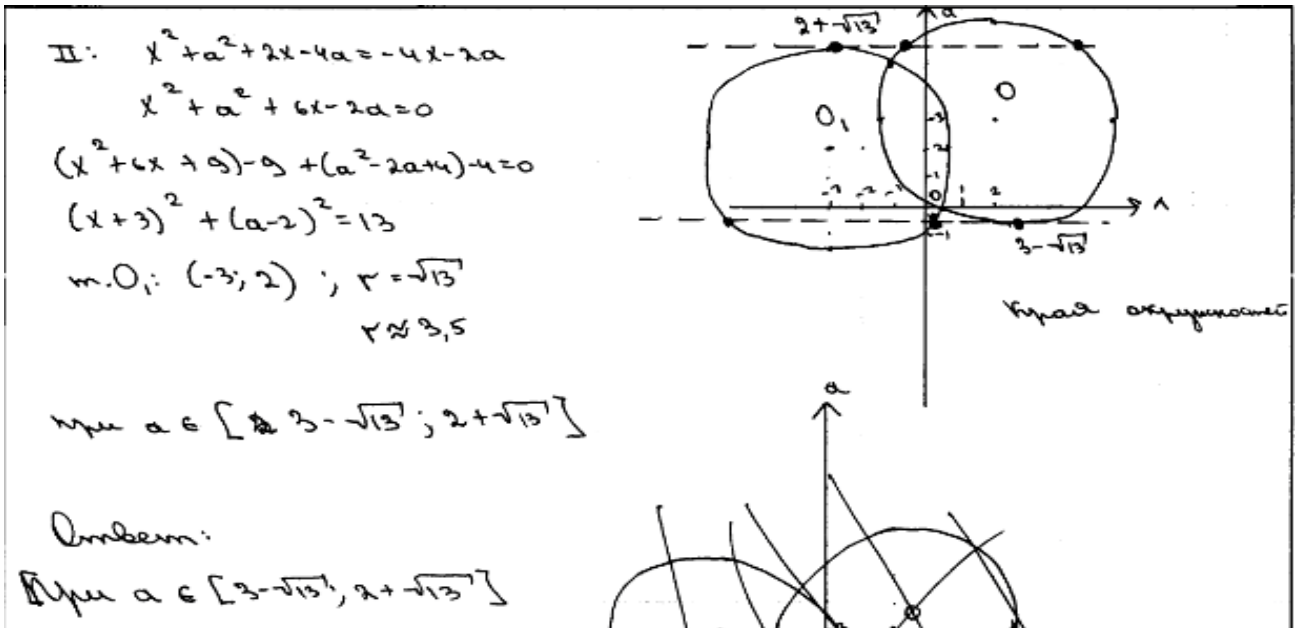 II: x² + a² + 2x - 4a = -4x - 2a
x² + a² + 6x - 2a = 0
(x² + 6x + 9) - 9 + (a² - 2a + 4) - 4 = 0
(x + 3)² + (a - 2)² = 13
т.O₁: (-3; 2) ; r = √13
r ≈ 3,5
при a ∈ [3 - √13 ; 2 + √13]
Ответ:
При a ∈ [3 - √13 ; 2 + √13]
2 + √13
a
O
O₁
-3
-2
-1
-3 -2 -1 0 1 2
-1
3 - √13
Края окружностей
a